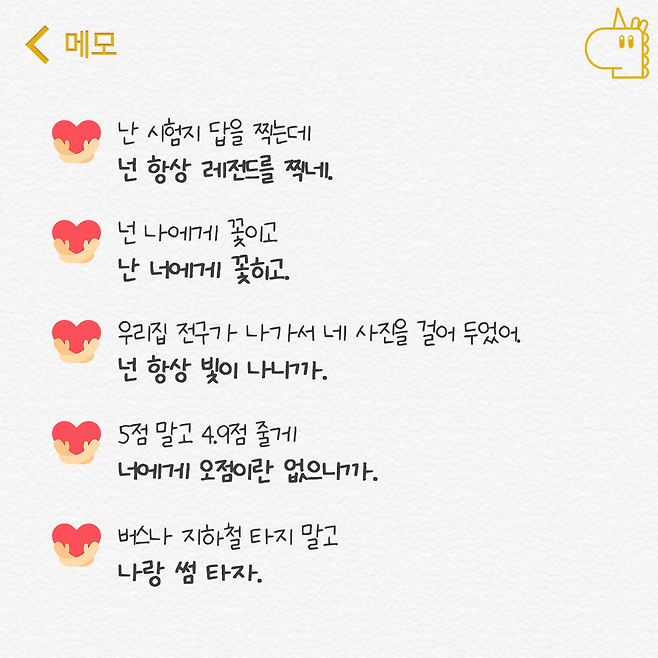 메모
난 시험지 답을 찍는데
넌 항상 레전드를 찍네.
넌 나에게 꽃이고
난 너에게 꽂히고.
우리집 전구가 나가서 네 사진을 걸어 두었어.
넌 항상 빛이 나니까.
5점 말고 4.9점 줄게
너에게 오점이란 없으니까.
버스나 지하철 타지 말고
나랑 썸 타자.